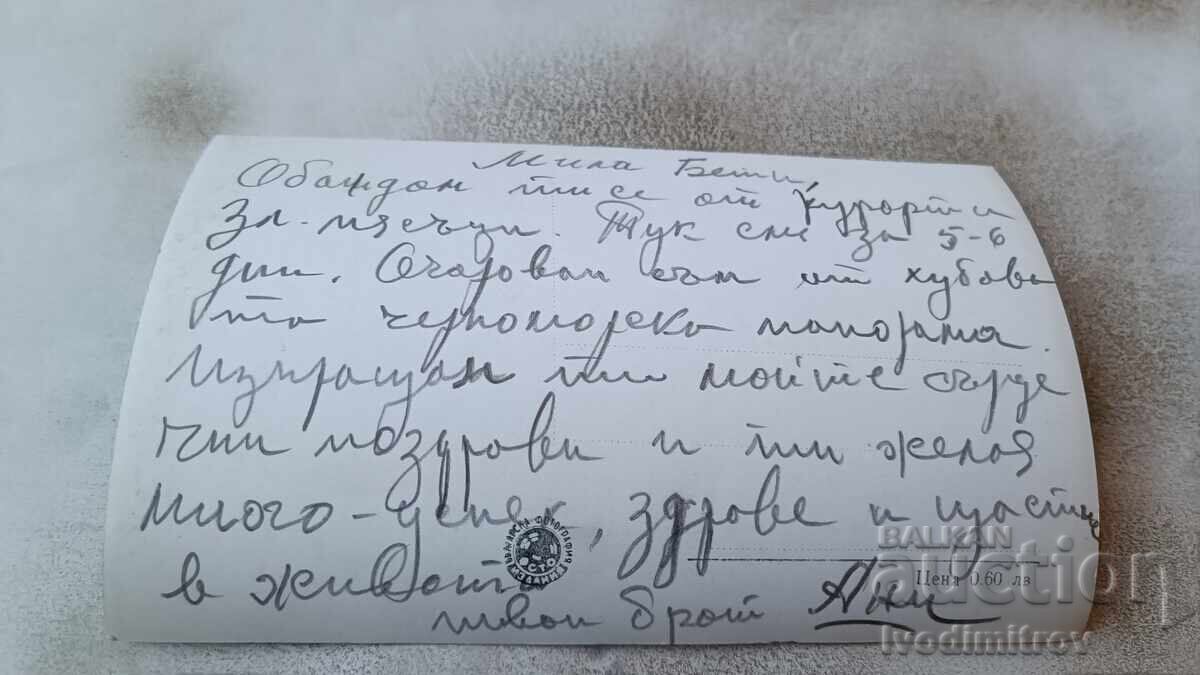 Мила Бети,
Обаждам ти се от курорта
Зл. мясъци. Тук сме за 5-6
дни. Очарован съм от хубава
та черноморска панорама.
Изпращам ти моите сърде
чни поздрави и ти желая
много-успех, здраве и щастие
в живота
твой брат
БЪЛГАРСКА ФОТОГРАФИЯ
ИЗДАНИЕ
Цена 0.60 лв
BALKAN
auction
Ivodimitrov